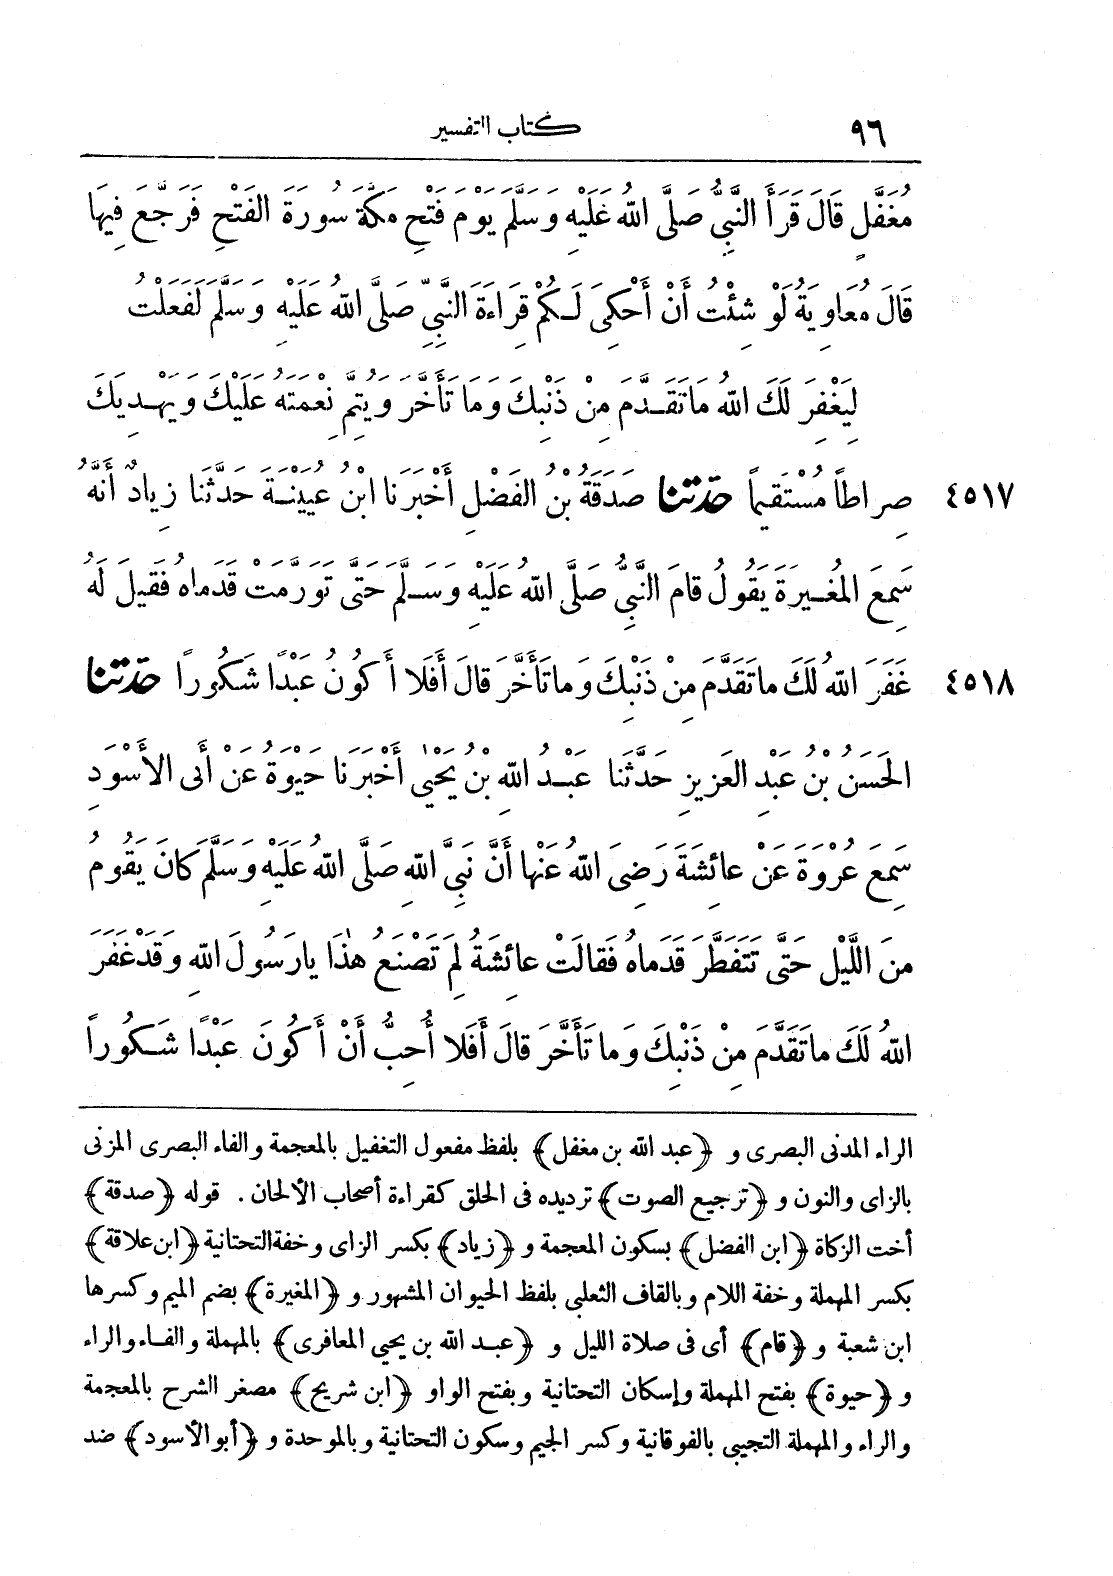 ٩٦ كتاب التفسير
مُغَفَّلٍ قَالَ قَرَأَ النَّبِيُّ صَلَّى اللهُ عَلَيْهِ وَسَلَّمَ يَوْمَ فَتْحِ مَكَّةَ سُورَةَ الفَتْحِ فَرَجَّعَ فِيهَا
قَالَ مُعَاوِيَةُ لَوْ شِئْتُ أَنْ أَحْكِيَ لَكُمْ قِرَاءَةَ النَّبِيِّ صَلَّى اللهُ عَلَيْهِ وَسَلَّمَ لَفَعَلْتُ
لِيَغْفِرَ لَكَ اللهُ مَا تَقَدَّمَ مِنْ ذَنْبِكَ وَمَا تَأَخَّرَ وَيُتِمَّ نِعْمَتَهُ عَلَيْكَ وَيَهْدِيَكَ
٤٥١٧ صِرَاطًا مُسْتَقِيمًا حدثنا صَدَقَةُ بْنُ الفَضْلِ أَخْبَرَنَا ابْنُ عُيَيْنَةَ حَدَّثَنَا زِيَادٌ أَنَّهُ
سَمِعَ المُغِيرَةَ يَقُولُ قَامَ النَّبِيُّ صَلَّى اللهُ عَلَيْهِ وَسَلَّمَ حَتَّى تَوَرَّمَتْ قَدَمَاهُ فَقِيلَ لَهُ
٤٥١٨ غَفَرَ اللهُ لَكَ مَا تَقَدَّمَ مِنْ ذَنْبِكَ وَمَا تَأَخَّرَ قَالَ أَفَلَا أَكُونُ عَبْدًا شَكُورًا حدثنا
الحَسَنُ بْنُ عَبْدِ العَزِيزِ حَدَّثَنَا عَبْدُ اللهِ بْنُ يَحْيَى أَخْبَرَنَا حَيْوَةُ عَنْ أَبِي الأَسْوَدِ
سَمِعَ عُرْوَةَ عَنْ عَائِشَةَ رَضِيَ اللهُ عَنْهَا أَنَّ نَبِيَّ اللهِ صَلَّى اللهُ عَلَيْهِ وَسَلَّمَ كَانَ يَقُومُ
مِنَ اللَّيْلِ حَتَّى تَتَفَطَّرَ قَدَمَاهُ فَقَالَتْ عَائِشَةُ لِمَ تَصْنَعُ هٰذَا يَا رَسُولَ اللهِ وَقَدْ غَفَرَ
اللهُ لَكَ مَا تَقَدَّمَ مِنْ ذَنْبِكَ وَمَا تَأَخَّرَ قَالَ أَفَلَا أُحِبُّ أَنْ أَكُونَ عَبْدًا شَكُورًا
الراء المدنى البصرى و ﴿عبد الله بن مغفل﴾ بلفظ مفعول التغفيل بالمعجمة والفاء البصرى المزنى
بالزاى والنون و ﴿ترجيع الصوت﴾ ترديده فى الحلق كقراءة أصحاب الألحان . قوله ﴿صدقة﴾
أخت الزكاة ﴿ابن الفضل﴾ بسكون المعجمة و ﴿زياد﴾ بكسر الزاى وخفة التحتانية ﴿ابن علاقة﴾
بكسر المهملة وخفة اللام وبالقاف الثعلبى بلفظ الحيوان المشهور و ﴿المغيرة﴾ بضم الميم وكسرها
ابن شعبة و ﴿قام﴾ أى فى صلاة الليل و ﴿عبد الله بن يحيى المعافرى﴾ بالمهملة والفاء والراء
و ﴿حيوة﴾ بفتح المهملة وإسكان التحتانية وبفتح الواو ﴿ابن شريح﴾ مصغر الشرح بالمعجمة
والراء والمهملة التجيبى بالفوقانية وكسر الجيم وسكون التحتانية وبالموحدة و ﴿أبو الأسود﴾ ضد